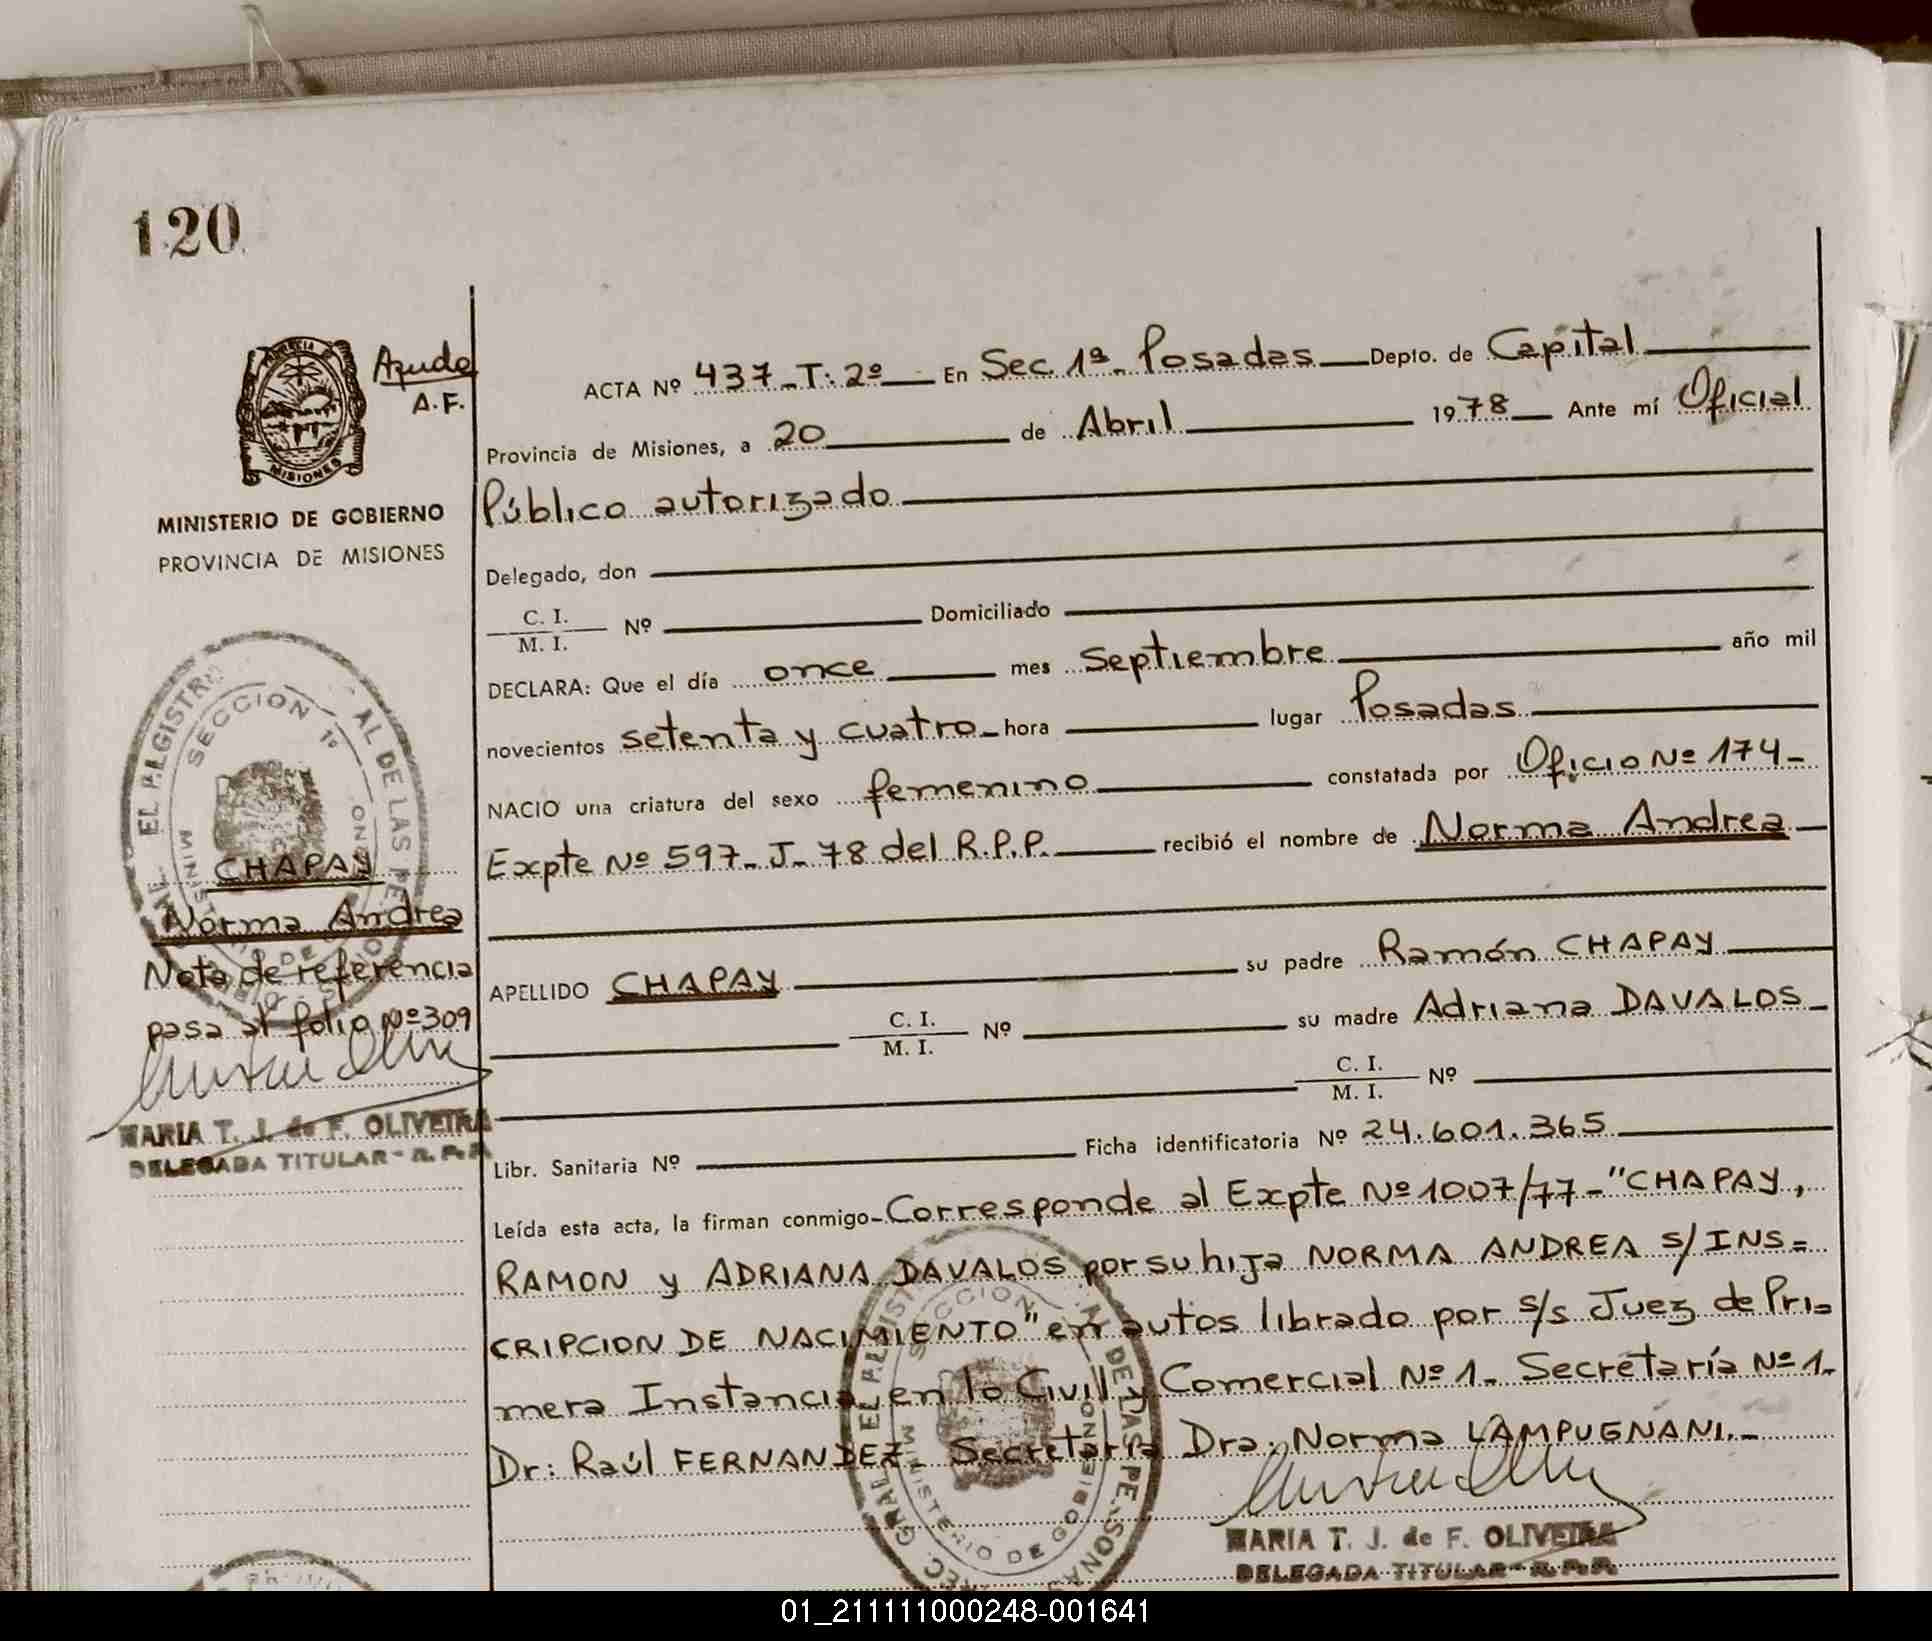 120
Ayude
A.F.
MISIONES
MINISTERIO DE GOBIERNO
PROVINCIA DE MISIONES
ACTA Nº 437_T: 2º En Sec. 1ª_ Posadas Depto. de Capital
Provincia de Misiones, a 20 de Abril 1978 Ante mí Oficial
Público autorizado
Delegado, don
C. I.
M. I. Nº Domiciliado
DECLARA: Que el día once mes septiembre año mil
novecientos setenta y cuatro hora lugar Posadas
NACIO una criatura del sexo femenino constatada por Oficio Nº 174-
Expte Nº 597_ J_ 78 del R.P.P. recibió el nombre de Norma Andrea
APELLIDO CHAPAY su padre Ramón CHAPAY
C. I.
M. I. Nº su madre Adriana DAVALOS
C. I.
M. I. Nº
Libr. Sanitaria Nº Ficha identificatoria Nº 24.601.365
Leída esta acta, la firman conmigo- Corresponde al Expte Nº 1007/77-"CHAPAY,
RAMON y ADRIANA DAVALOS por su hija NORMA ANDREA s/INS=
CRIPCION DE NACIMIENTO" en autos librado por s/s Juez de Pri=
mera Instancia en lo Civil y Comercial Nº 1_ Secretaría Nº 1_
Dr: Raúl FERNANDEZ_ Secretaría Dra. Norma LAMPUGNANI.-
MARIA T. J. de F. OLIVEIRA
DELEGADA TITULAR - R. P. P.
CHAPAY
Norma Andrea
Nota de referencia
pasa al folio Nº 309
MARIA T. J. de F. OLIVEIRA
DELEGADA TITULAR - R. P. P.
SECCION 1º
MINISTERIO DE GOBIERNO
01_211111000248-001641